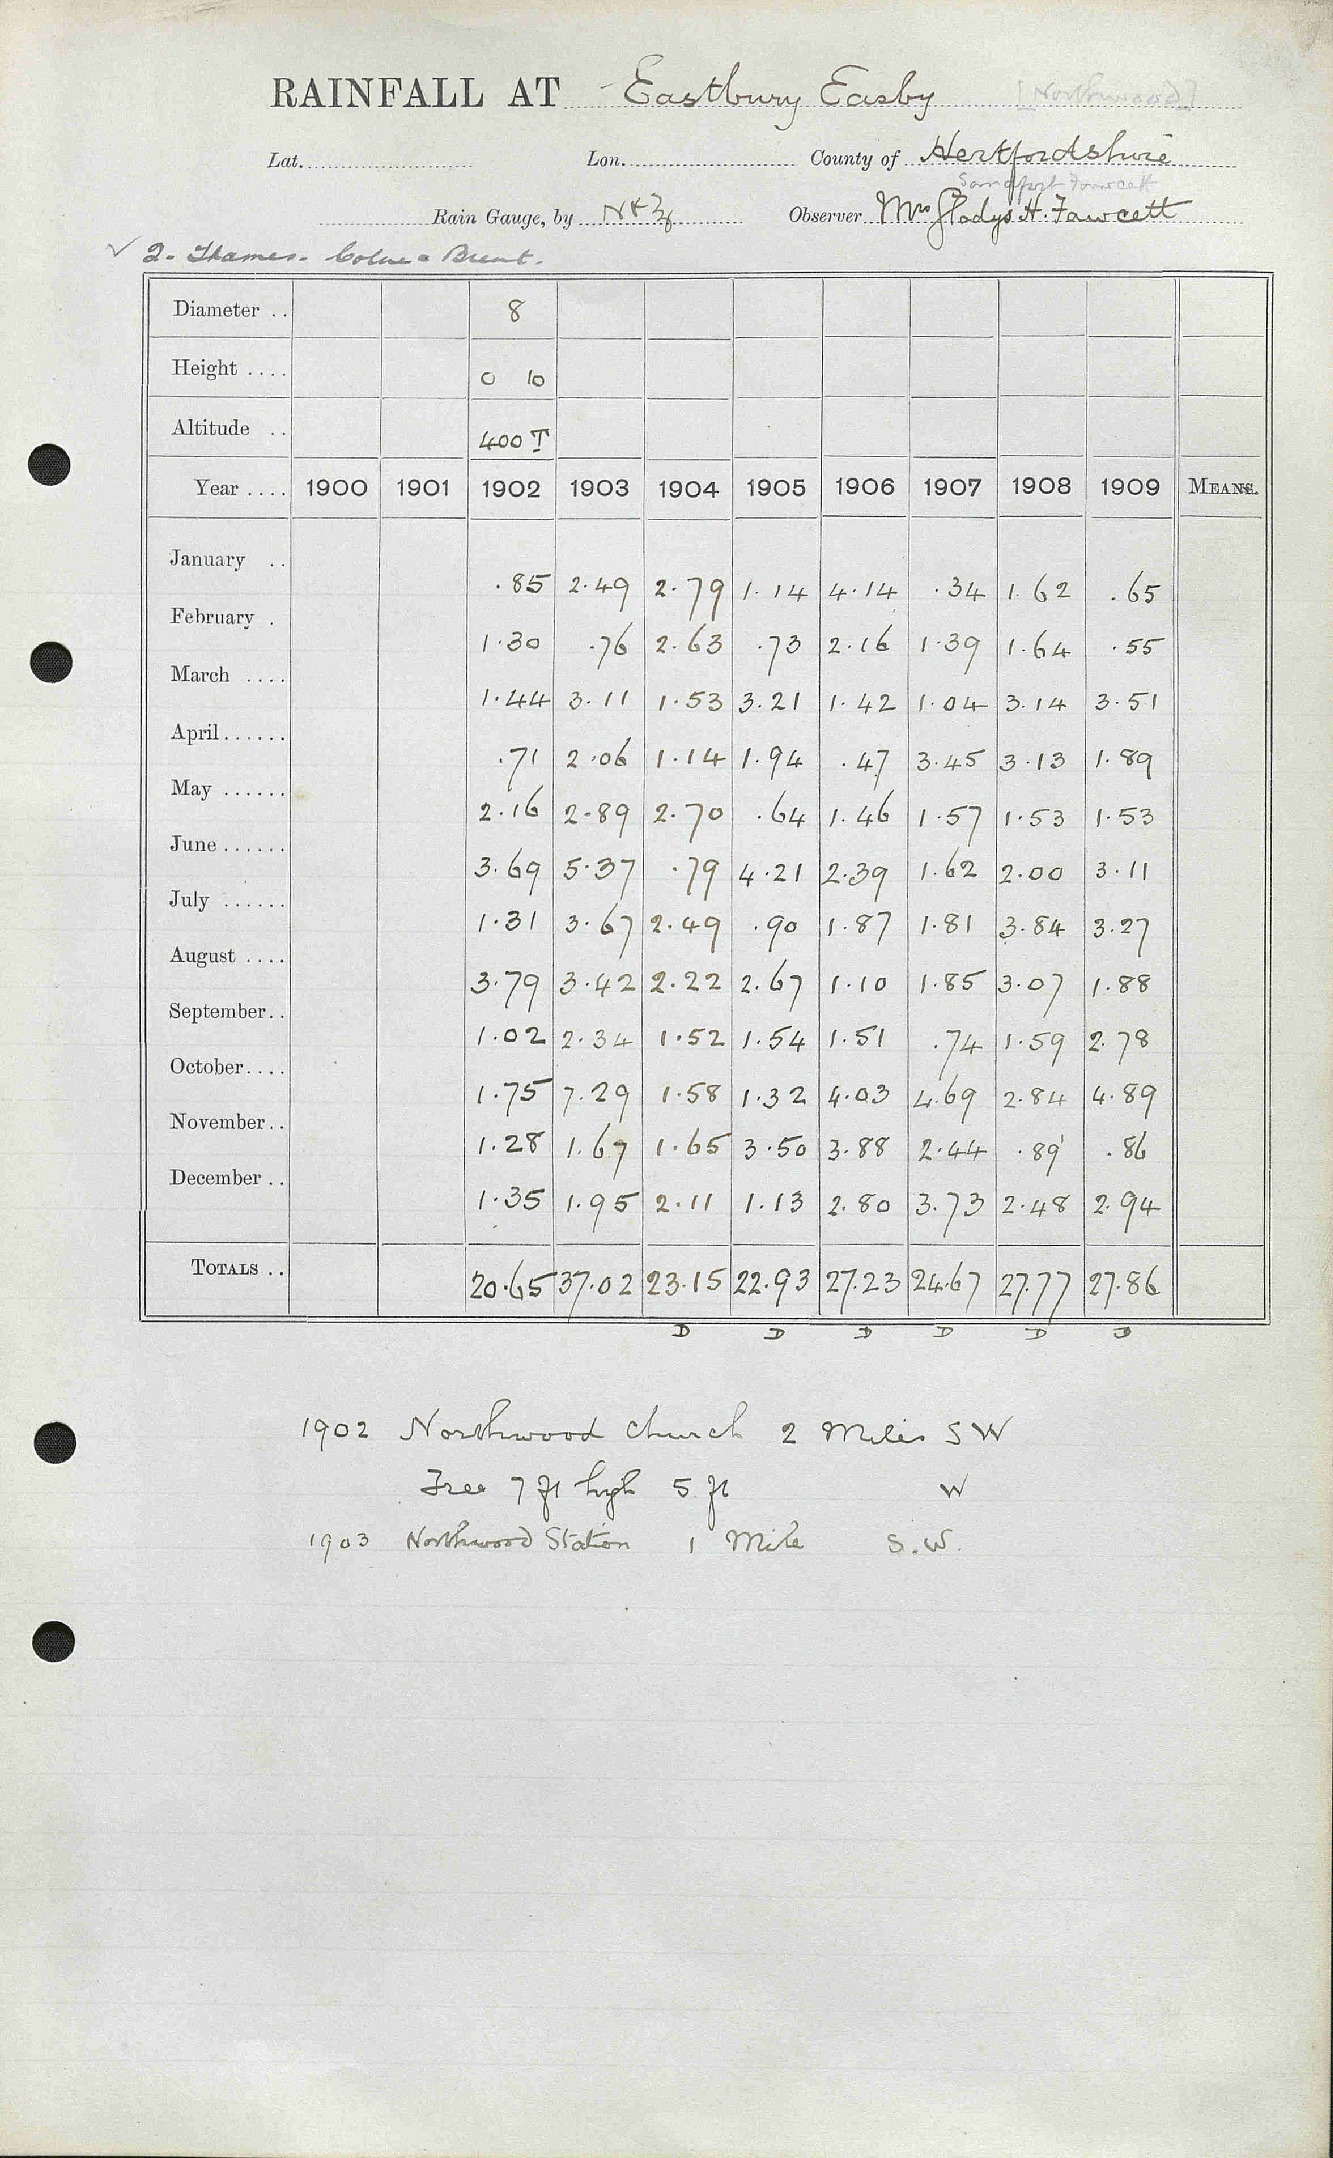 RAINFALL AT Eastbury Easby [Northwood]
Lat. Lon. County of Hertfordshire
Fawcett
Rain Gauge, by N & Z Observer Mrs Gladys H. Fawcett
✓ 2. Thames. Colne & Brent.
Diameter .. 8
Height .... 0 10
Altitude .. 400 T
Year .... 1900 1901 1902 1903 1904 1905 1906 1907 1908 1909 MEANS.
January .. .85 2.49 2.79 1.14 4.14 .34 1.62 .65
February . 1.30 .76 2.63 .73 2.16 1.39 1.64 .55
March .... 1.44 3.11 1.53 3.21 1.42 1.04 3.14 3.51
April...... .71 2.06 1.14 1.94 .47 3.45 3.13 1.89
May ...... 2.16 2.89 2.70 .64 1.46 1.57 1.53 1.53
June ...... 3.69 5.37 .79 4.21 2.39 1.62 2.00 3.11
July ...... 1.31 3.67 2.49 .90 1.87 1.81 3.84 3.27
August .... 3.79 3.42 2.22 2.67 1.10 1.85 3.07 1.88
September.. 1.02 2.34 1.52 1.54 1.51 .74 1.59 2.78
October.... 1.75 7.29 1.58 1.32 4.03 4.69 2.84 4.89
November.. 1.28 1.67 1.65 3.50 3.88 2.44 .89 .86
December .. 1.35 1.95 2.11 1.13 2.80 3.73 2.48 2.94
TOTALS .. 20.65 37.02 23.15 22.93 27.23 24.67 27.77 27.86
D D D D D D
1902 Northwood Church 2 Miles SW
Tree 7 ft high 5 ft W
1903 Northwood Station 1 Mile S.W.